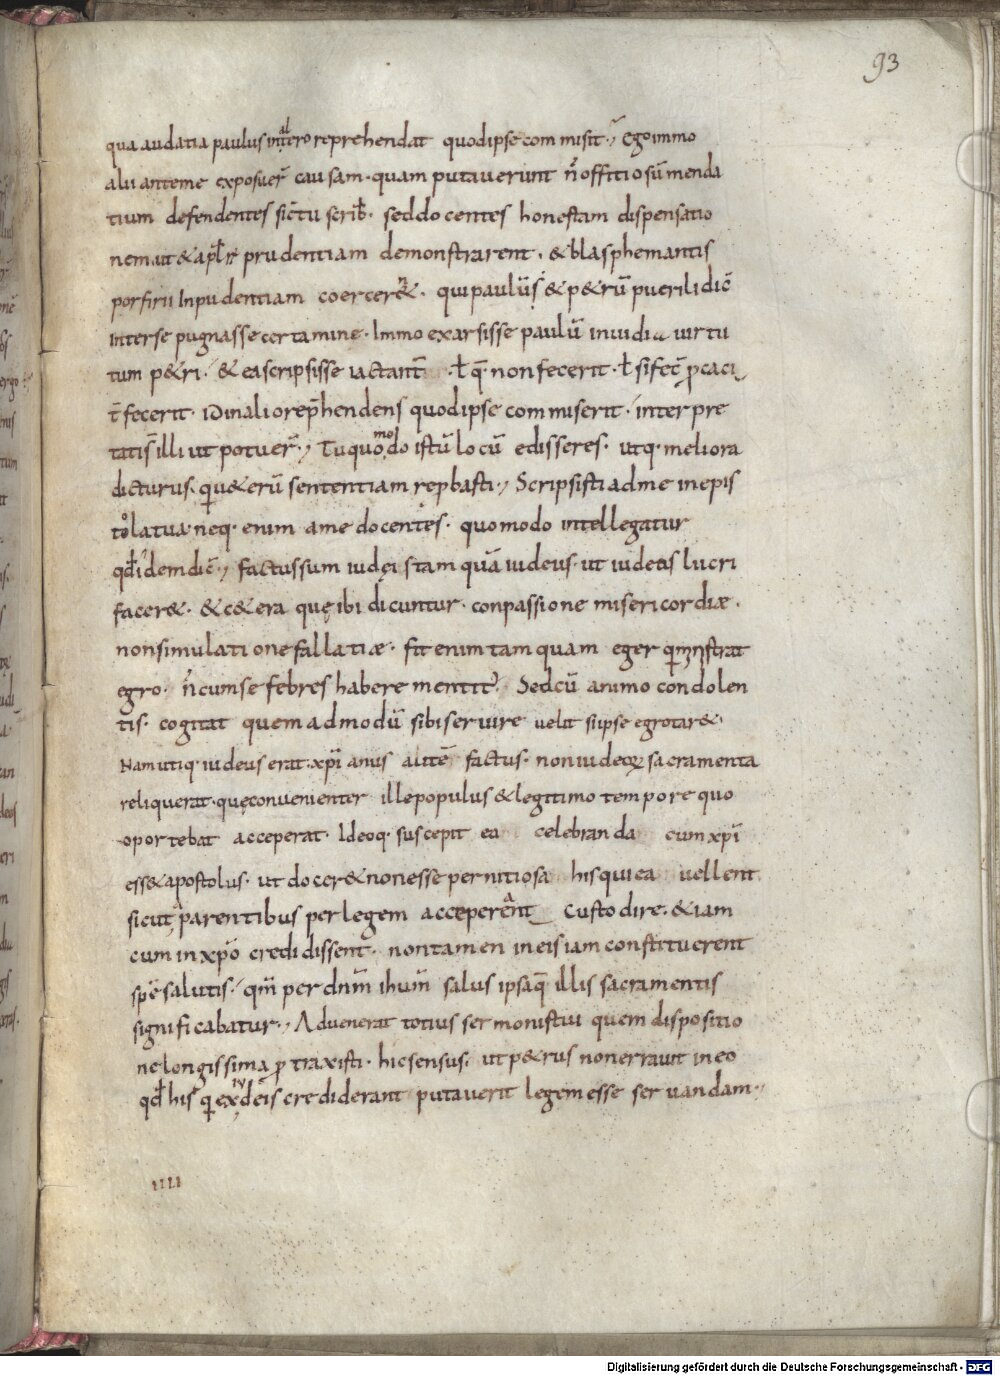 93
qua audatia paulus in altero reprehendat quod ipse commisit ; Ego immo
alii ante me exposuer̄ causam · quam putaverunt ñ offitiosū menda
tium defendentes sic̄ tu scrib̄ · sed docentes honestam dispensatio
nem ut & apl̄i prudentiam demonstrarent · & blasphemantis
porfirii inpudentiam coercer& · qui paulū & p&rū puerili dic̄
inter se pugnasse certamine · Immo exarsisse paulū invidia virtu
tum p&ri · & ea scripsisse iactant̄ ł q̄ non fecerit · ł si fec̄ ꝓcaci
t̄ fecerit · id in alio rep̄hendens quod ipse commiserit · interpre
tati s̄ illi ut potuer̄ ; Tu quomodo istū locū edisseres · utq· meliora
dicturus · qui &erū sententiam repbasti ; Scripsisti ad me in epis
tola tua · neq· enim a me docentes · quomodo intellegatur
qd̄ idem dic̄ ; factus sum iudęis tamquā iudeus · ut iudeos lucri
facer& · & c&era quę ibi dicuntur · conpassione misericordiæ ·
non simulatione fallatiæ · fit enim tamquam eger qui ministrat
egro · ñ cum se febres habere mentit᷑ · Sed cū animo condolen
tis · cogitat quemadmodū sibi servire velit si ipse egrotar& ·
Nam utiq· iudeus erat · xp̄ianus autē factus · non iudeoꝝ sacramenta
reliquerat · quę convenienter ille populus & legitimo tempore quo
oportebat acceperat · Ideoq· suscepit ea celebranda cum xp̄i
ess& apostolus · ut docer& non esse pernitiosa his qui ea vellent
sicut a parentibus per legem acceperant custodire · & iam
cum in xp̄o credidissent · non tamen in eis iam constituerent
spē salutis · qm̄ per dnm̄ ihum̄ salus ipsa q̄ illis sacramentis
significabatur ; Advenerat totius sermonis tui quem dispositio
ne longissima ꝓtraxisti · hic sensus · ut p&rus non erravit in eo
qd̄ his qui ex iudeis crediderant putaverit legem esse servandam ·
IIII
Digitalisierung gefördert durch die Deutsche Forschungsgemeinschaft - DFG